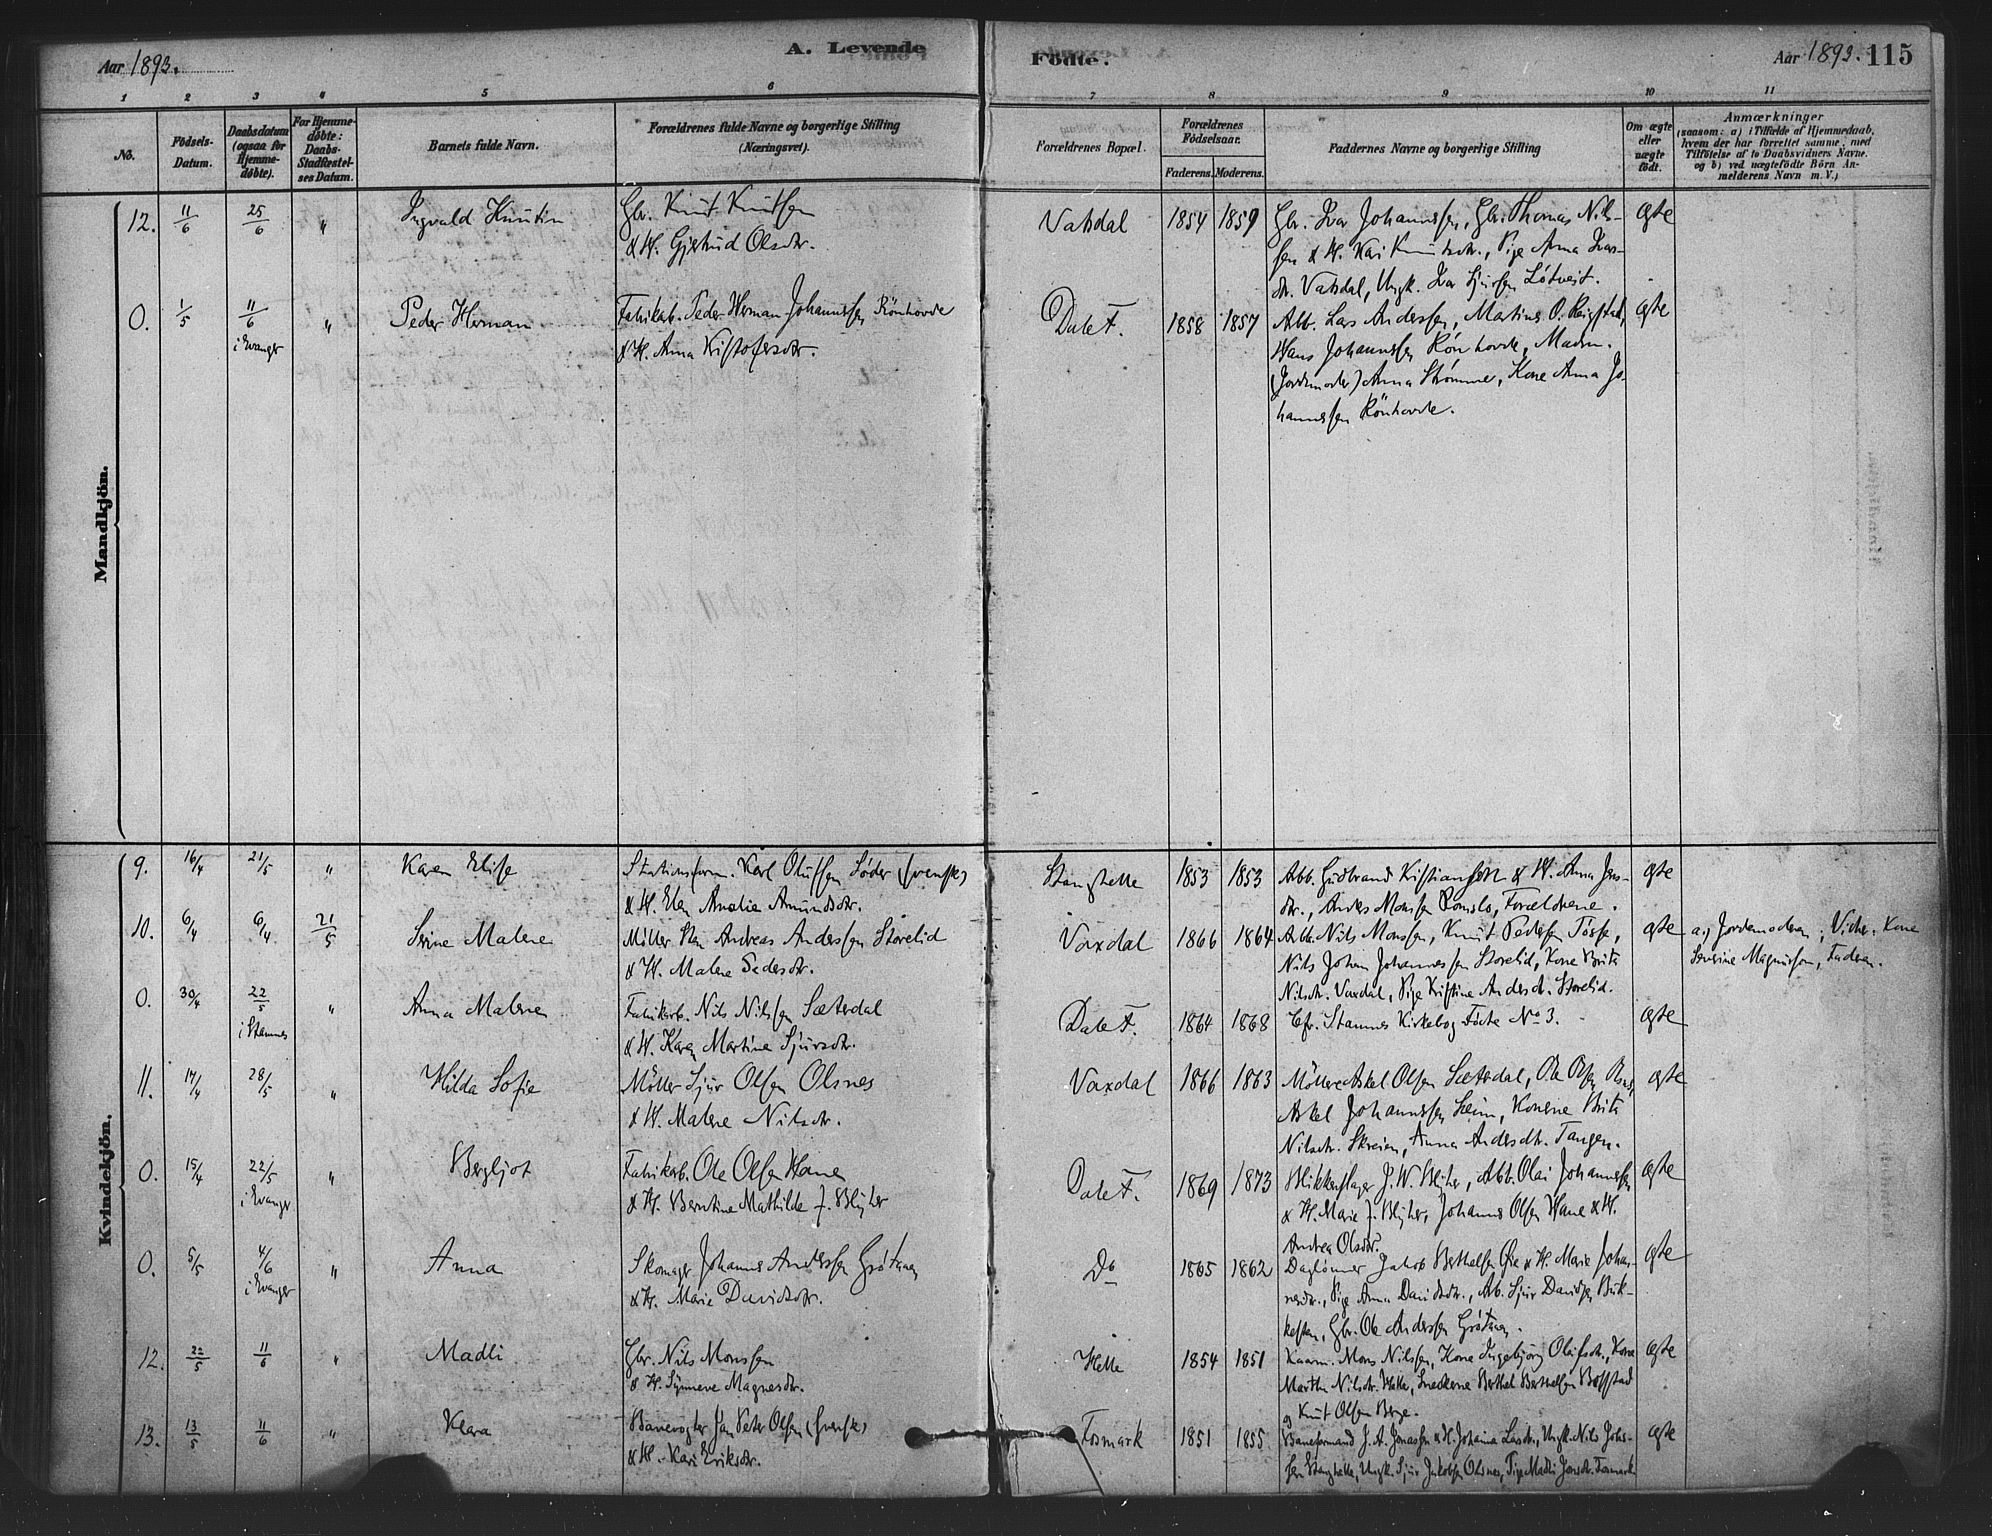 Aar 1893.
A. Levende
Fødte.
Aar 1893. 115
1 2 3 4 5 6 7 8 9 10 11
No.
Fødsels-
Datum.
Daabsdatum
(ogsaa for
Hjemme-
døbte).
For Hjemme-
døbte:
Daabs-
Stadfæstel-
ses Datum.
Barnets fulde Navn.
Forældrenes fulde Navne og borgerlige Stilling
(Næringsvei).
Forældrenes Bopæl.
Forældrenes
Fødselsaar.
Faderens. Moderens.
Faddernes Navne og borgerlige Stilling
Om ægte
eller
uægte
født.
Anmærkninger
(saasom: a) i Tilfælde af Hjemmedaab,
hvem der har forrettet samme, med
Tilføielse af to Daabsvidners Navne.
og b) ved uægtefødte Børn An-
melderens Navn m. V.)
Mandkjön.
12. 11/6 25/6 " Ingvald Knutsen
Gbr. Knut Knutsen
& H. Gjertrud Olsdtr.
Vatsdal 1854 1859
Gbr. Ivar Johannessen, Gbr. Thomas Nil-
sen & H. Kari Knutsdtr., Pige Anna Ivars-
dtr. Vatsdal, Ungk. Ivar Sjursen Løtveit.
ægte
0. 1/5 11/6 i Evanger " Peder Herman
Fabrikab. Peder Herman Johannessen Rönhovde
& H. Anna Kristofersdtr.
Dale F. 1858 1857
Arb. Lars Anderssen, Martines O. Reigstad,
Hans Johannessen Rönhovde, Madm.
(Jordmoder) Anna Strömme, Kone Anna Jo-
hannessen Rönhovde.
ægte
Kvindekjön.
9. 16/4 21/5 " Karen Elise
Stationsform. Karl Olufsen Söder (svensk)
& H. Elen Amalia Amundsdtr.
Stanghelle 1853 1853
Arb. Gudbrand Kristiansen & H. Anna Jens-
dtr., Anders Monsen Romslo, Forældrene.
ægte
10. 6/4 6/4 21/5 Serine Malene
Möller Sten Andreas Anderssen Storelid
& H. Malene Pedersdtr.
Vaxdal 1866 1864
Arb. Nils Monssen, Knut Pedersen Tösse,
Nils Johan Johannessen Storelid, Kone Brita
Nilsdtr. Vaxdal, Pige Kristine Andersd. Storelid.
ægte
a.) Jordemoderen; Vidner: Kone
Severine Magnussen, Faderen.
0. 30/4 22/5 i Stamnes " Anna Malene
Fabrikarb. Nils Nilssen Sæterdal
& H. Karen Martine Sjursdtr.
Dale F. 1864 1868
Cfr. Stamnes Kirkebog Födte No 3.
ægte
11. 17/4 28/5 " Hilda Sofie
Möller Sjur Olsen Olsnes
& H. Malene Nilsdtr.
Vaxdal 1866 1863
Möllere Askel Olsen Sæterdal, Ole Olsen
Askel Johannessen Seim, Konerne Brita
Nilsdtr. Skreien, Anna Andersdtr. Tangen.
ægte
0. 15/4 22/5 i Evanger " Bergljot
Fabrikarb. Ole Olsen Hane
& H. Berntine Mathilde J. Blyher
Dale F. 1869 1873
Blikkenslager J. W. Bliher, Arb. Olai Johannessen
& H. Marie J. Blyher, Johannes Olsen Hane & H.
Andrea Olsdtr.
ægte
0. 5/5 4/6 i Evanger " Anna
Skomager Johannes Anderssen Gröttnen
& H. Marie Davidsdtr.
Do 1865 1862
Daglönner Jakob Berthelsen Öie & H. Marie Johan-
nesdtr., Pige Anna Davidsdtr., Arb. Sjur Davidsen Buk-
kesten, Gbr. Ole Anderssen Gröttnen.
ægte
12. 22/5 11/6 " Madli
Gbr. Nils Monssen
& H. Synneve Magnesdtr.
Helle 1854 1851
Kaarm. Mons Nilssen, Kone Ingebjörg Olufsdtr., Kone
Martha Nilsdtr. Helle, Snedkerne Berthel Berthelsen Bolstad
og Knut Olsen Berge.
ægte
13. 13/5 11/6 " Klara
Banevogter Jan Peter Olsen (svensk)
& H. Kari Eriksdtr.
Fosmark 1851 1855
Baneformand J. A. Jonassen & H. Johanna Larsdtr., Ungk. Nils Johs-
sen Stanghelle, Ungk. Sjur Jakobsen Olsnes, Pige Madli Jensdtr. Fosmark
ægte